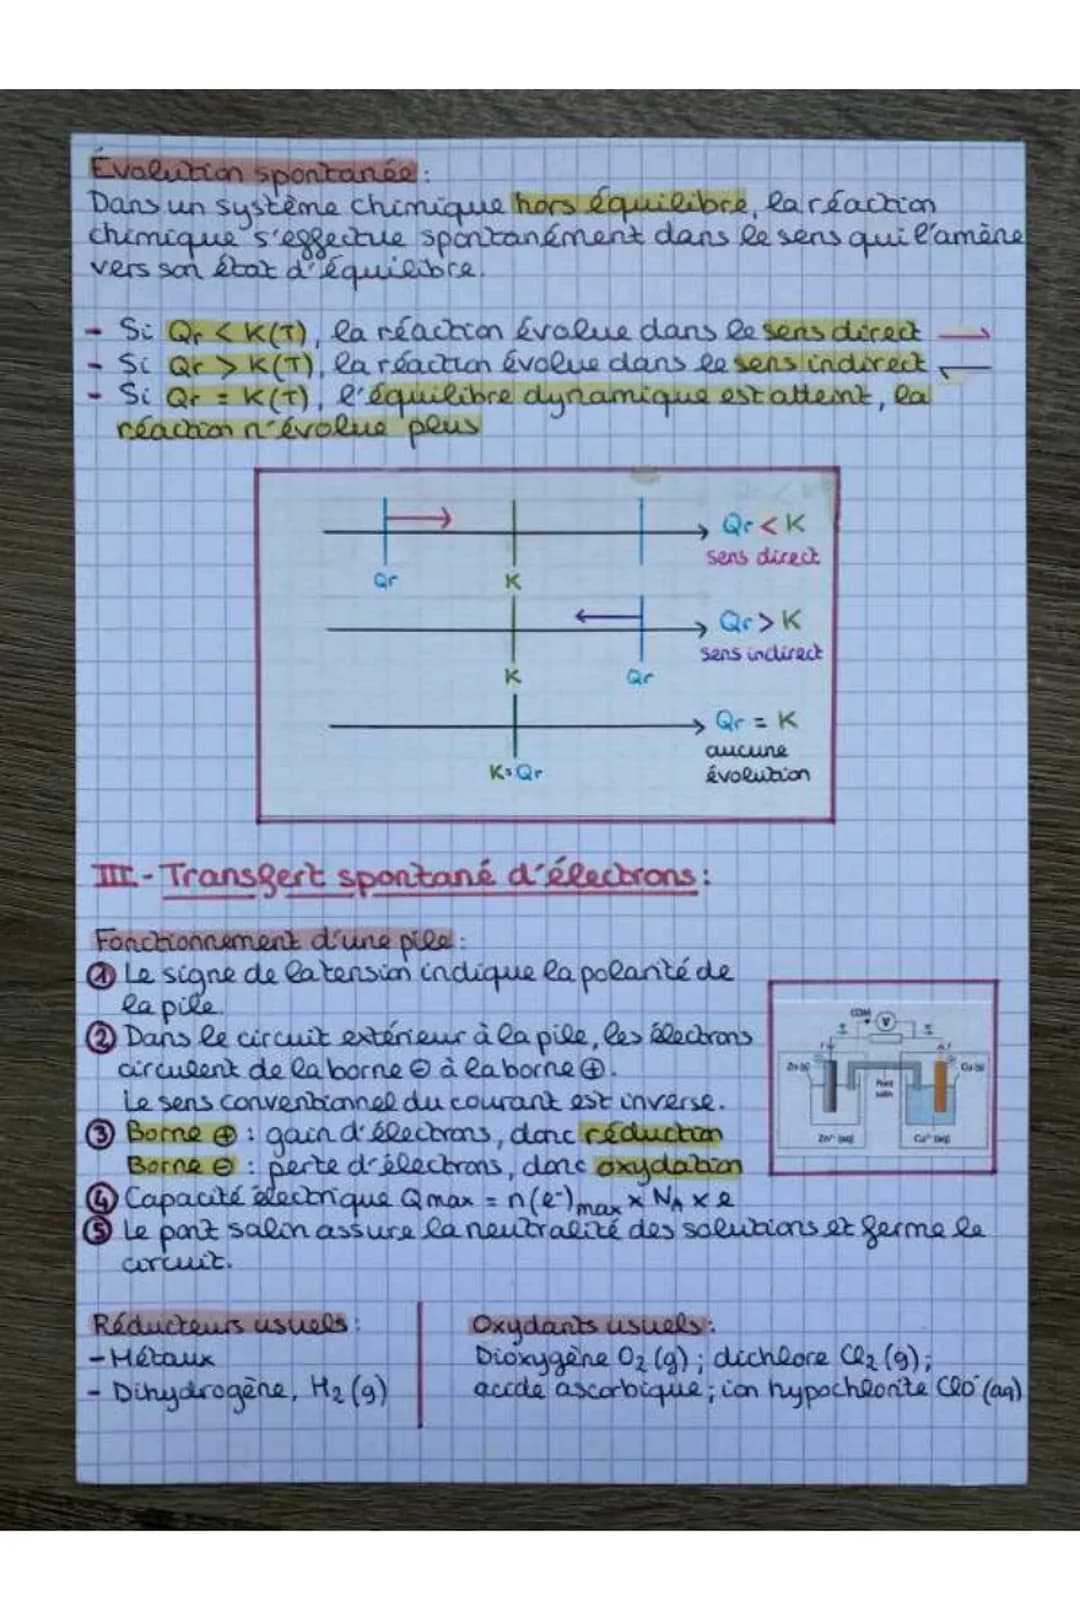 Évolution spontanée :
Dans un système chimique hors équilibre, la réaction
chimique s'effectue spontanément dans le sens qui l'amène
vers son état d'équilibre.
- Si Qr < K(T), la réaction évolue dans le sens direct →
- Si Qr > K(T), la réaction évolue dans le sens indirect ←
- Si Qr = K(T), l'équilibre dynamique est atteint, la
réaction n'évolue plus
Qr < K
sens direct
Qr K
Qr > K
sens indirect
K Qr
Qr = K
aucune
évolution
K=Qr
III - Transfert spontané d'électrons :
Fonctionnement d'une pile :
① Le signe de la tension indique la polarité de
la pile.
② Dans le circuit extérieur à la pile, les électrons
circulent de la borne ⊖ à la borne ⊕.
Le sens conventionnel du courant est inverse.
③ Borne ⊕ : gain d'électrons, donc réduction
Borne ⊖ : perte d'électrons, donc oxydation
④ Capacité électrique Qmax = n(e⁻)max × NA × e
⑤ Le pont salin assure la neutralité des solutions et ferme le
circuit.
COM V
Zn (s) Cu (s)
Pont
salin
Zn²⁺ (aq) Cu²⁺ (aq)
Réducteurs usuels :
- Métaux
- Dihydrogène, H₂ (g)
Oxydants usuels :
Dioxygène O₂ (g) ; dichlore Cl₂ (g) ;
acide ascorbique ; ion hypochlorite ClO⁻ (aq)